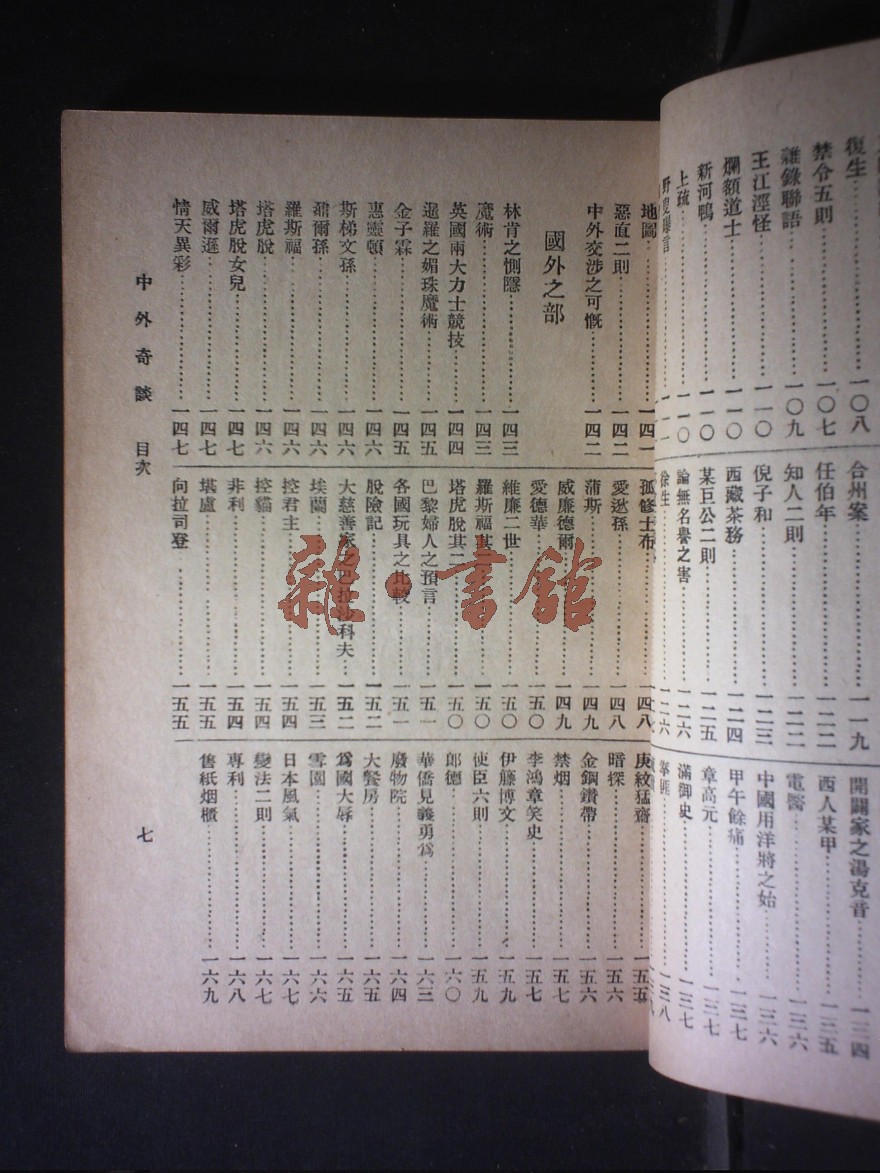 復生……一〇八
禁令五則……一〇七
雜錄聯語……一〇九
王江涇怪……一一〇
爛額道士……一一〇
新河鴨……一一〇
上疏……一一〇
台州案……一一九
任伯年……一二二
知人二則……一二二
倪子和……一二三
西藏茶務……一二四
某巨公二則……一二五
論無名譽之害……一二六
徐生……一二六
開闢家之湯克音……一三四
西人某甲……一三五
電醫……一三六
中國用洋將之始……一三六
甲午餘痛……一三七
章高元……一三七
滿御史……一三七
地圖……一四一
惡直二則……一四二
中外交涉之可慨……一四二
國外之部
林肯之惻隱……一四三
魔術……一四三
英國兩大力士競技……一四四
暹羅之媚珠魔術……一四五
金子霖……一四五
惠靈頓……一四六
斯梯文孫……一四六
鼐爾孫……一四六
羅斯福……一四六
塔虎脫……一四六
塔虎脫女兒……一四七
威爾遜……一四七
情天異彩……一四七
孤修士布……一四八
愛遜孫……一四八
蒲斯……一四九
威廉德爾……一四九
愛德華……一五〇
維廉二世……一五〇
羅斯福其二……一五〇
塔虎脫其二……一五〇
巴黎婦人之預言……一五一
各國玩具之比較……一五一
脫險記……一五二
大慈善家之巴拉沙科夫……一五二
埃蘭……一五三
控君主……一五四
控貓……一五四
非利……一五四
堪盧……一五五
向拉司登……一五五
庚紋猛齋……一五五
暗探……一五六
金鋼鑽帶……一五六
禁烟……一五七
李鴻章笑史……一五七
伊藤博文……一五九
使臣六則……一五九
郎德……一六〇
華僑見義勇為……一六三
廢物院……一六四
大餐房……一六五
為國大辱……一六五
雪園……一六六
日本風氣……一六七
變法二則……一六七
專利……一六八
售紙烟櫃……一六九
中外奇談 目次
七
雜·書館